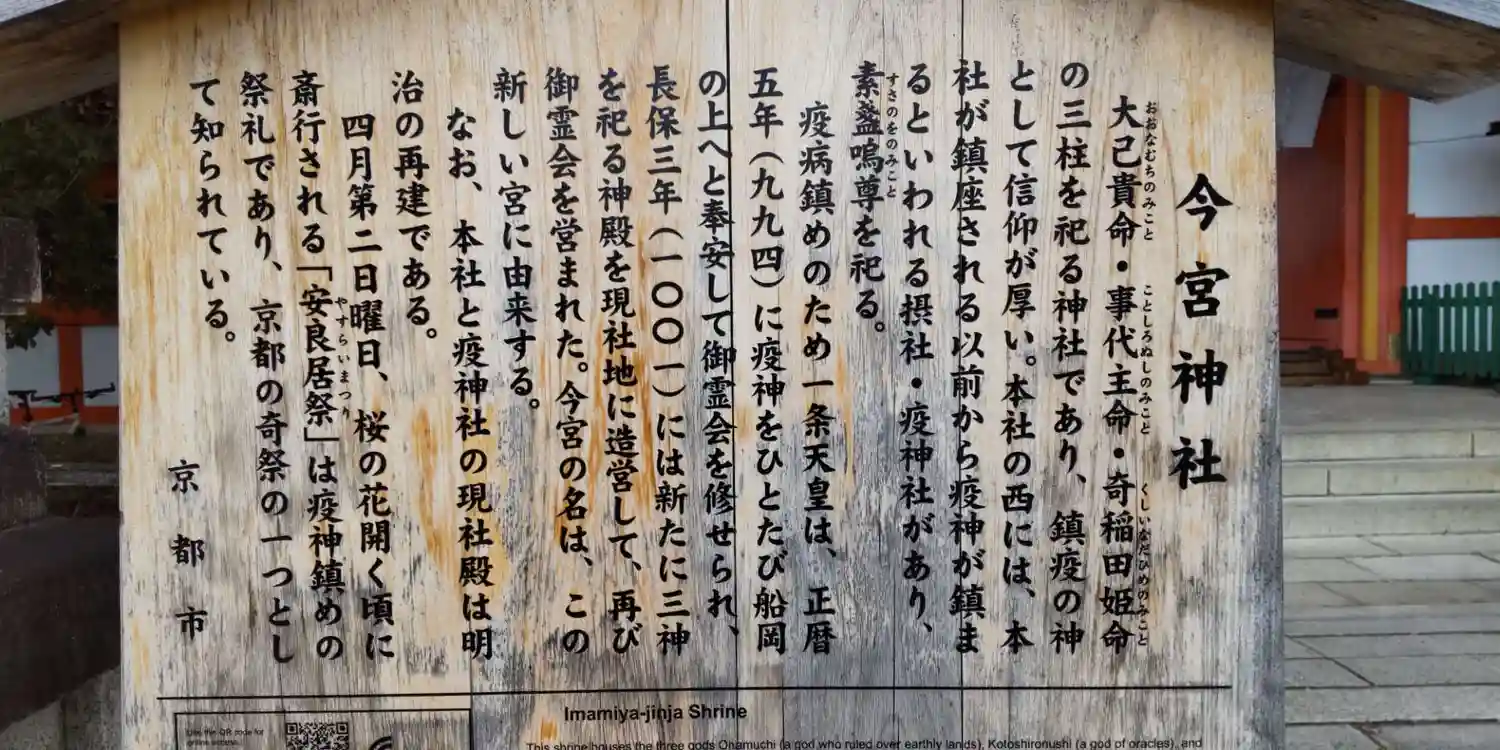 今宮神社
大己貴命・事代主命・奇稲田姫命
おおなむちのみこと ことしろぬしのみこと くしいなだひめのみこと
の三柱を祀る神社であり、鎮疫の神
として信仰が厚い。本社の西には、本
社が鎮座される以前から疫神が鎮ま
るといわれる摂社・疫神社があり、
素盞嗚尊を祀る。
すさのをのみこと
疫病鎮めのため一条天皇は、正暦
五年(九九四)に疫神をひとたび船岡
の上へと奉安して御霊会を修せられ、
長保三年(一〇〇一)には新たに三神
を祀る神殿を現社地に造営して、再び
御霊会を営まれた。今宮の名は、この
新しい宮に由来する。
なお、本社と疫神社の現社殿は明
治の再建である。
四月第二日曜日、桜の花開く頃に
斎行される「安良居祭」は疫神鎮めの
やすらいまつり
祭礼であり、京都の奇祭の一つとし
て知られている。
京都市
Imamiya-jinja Shrine
This shrine houses the three gods Onamuchi (a god who ruled over earthly lands), Kotoshironushi (a god of oracles), and
Use the QR code for
online access.